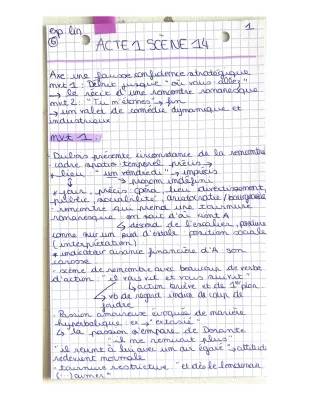 exp. lin
6
1
ACTE 1 SCÈNE 14
Axe une fausse confidence stratégique
mvt 1 : Début jusque "où vais aller"
→ le récit d'une rencontre romanesque
mvt 2 : "Tu m'étonnes" → fin
→ un valet de comédie dynamique et
industrieux
mvt 1 :
- Dubois présente circonstance de la rencontre
cadre spatio-temporel précis →
* lieu "un vendredi" → imprécis
→ pronom indéfini
* jour, précis opéra lieu divertissement,
public, sociabilité, aristocratie / bourgeoisie
- rencontre qui prend une tournure
romanesque on sait d'ai vont A
→ descend de l'escalier,
comme sur un pied d'estale position sociale
(interprétation)
* indicateur aisance financière d'A son
carosse
- scène de rencontre avec beaucoup de verbe
d'action "il vais et vous suivit"
→ action brève et de 1er plan
→ vb de regard indice de coup de
foudre
- Passion amoureux évoquée de manière
hyperbolique ex → "extasié"
↳ la passion s'empare de Dorante
"il me remuait plus"
"il revint à lui avec un air égaré" → attitude
redevient normale
- tournure restrictive "et dès le lendemain
(...) aimer"